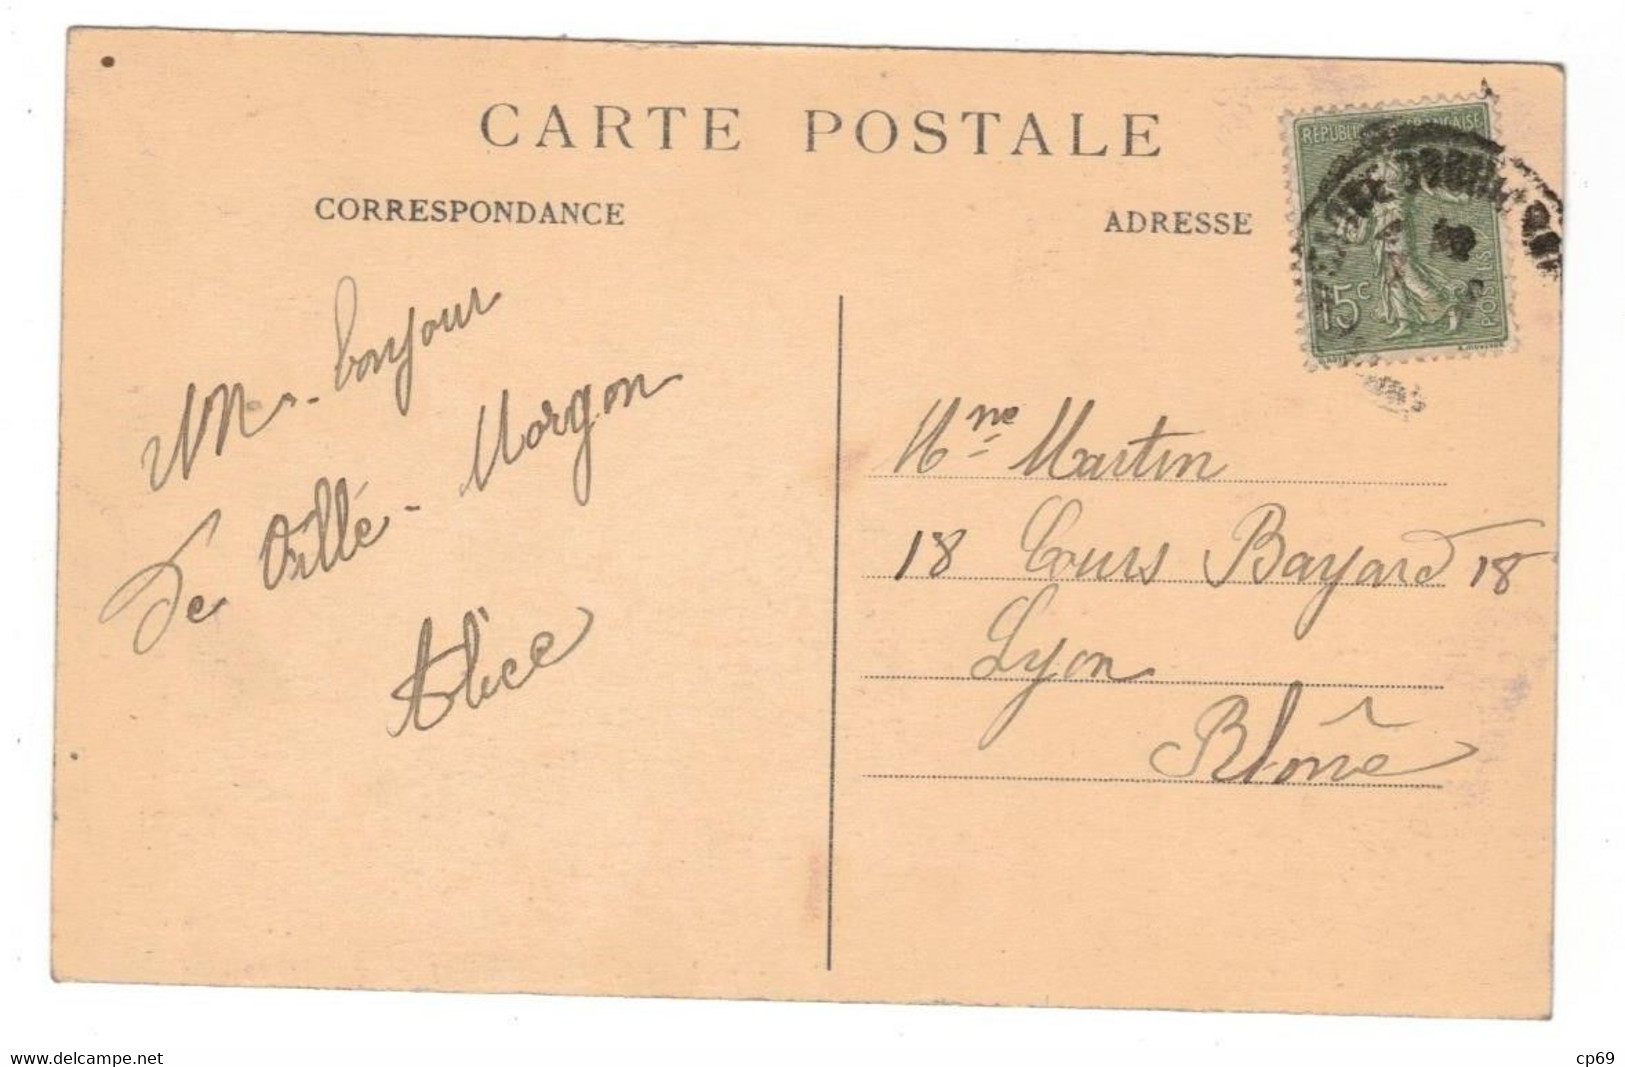 CARTE POSTALE
CORRESPONDANCE
ADRESSE
FRANÇAISE
15c
POSTES
bonjour
de Villé-Morgon
Alice
Mme Martin
18 Cours Bayard 18
Lyon
Rhône
www.delcampe.net
cp69